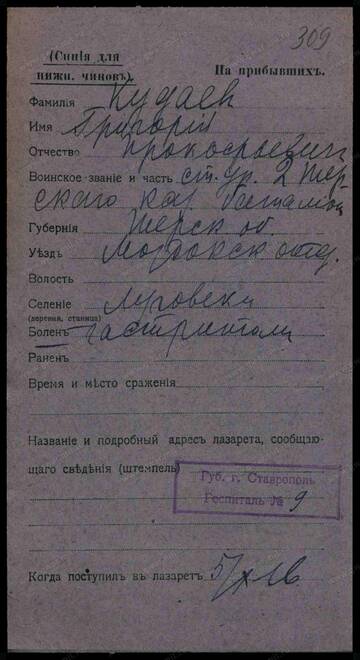 309
(Синія для
нижн. чиновъ).
На прибывшихъ.
Фамилія Кудаев
Имя Григорій
Отчество Прокофьевич
Воинское званіе и часть ст. ур. 2 Тер-
скаго каз.
Губернія Терск об.
Уѣздъ Моздокск отд.
Волость
Селеніе
(деревня, станица)
Боленъ
Раненъ
Время и мѣсто сраженія
Названіе и подробный адресъ лазарета, сообщаю-
щаго свѣдѣнія (штемпель)
Губ. г. Ставрополь
Госпиталь № 9
Когда поступилъ въ лазаретъ 5/